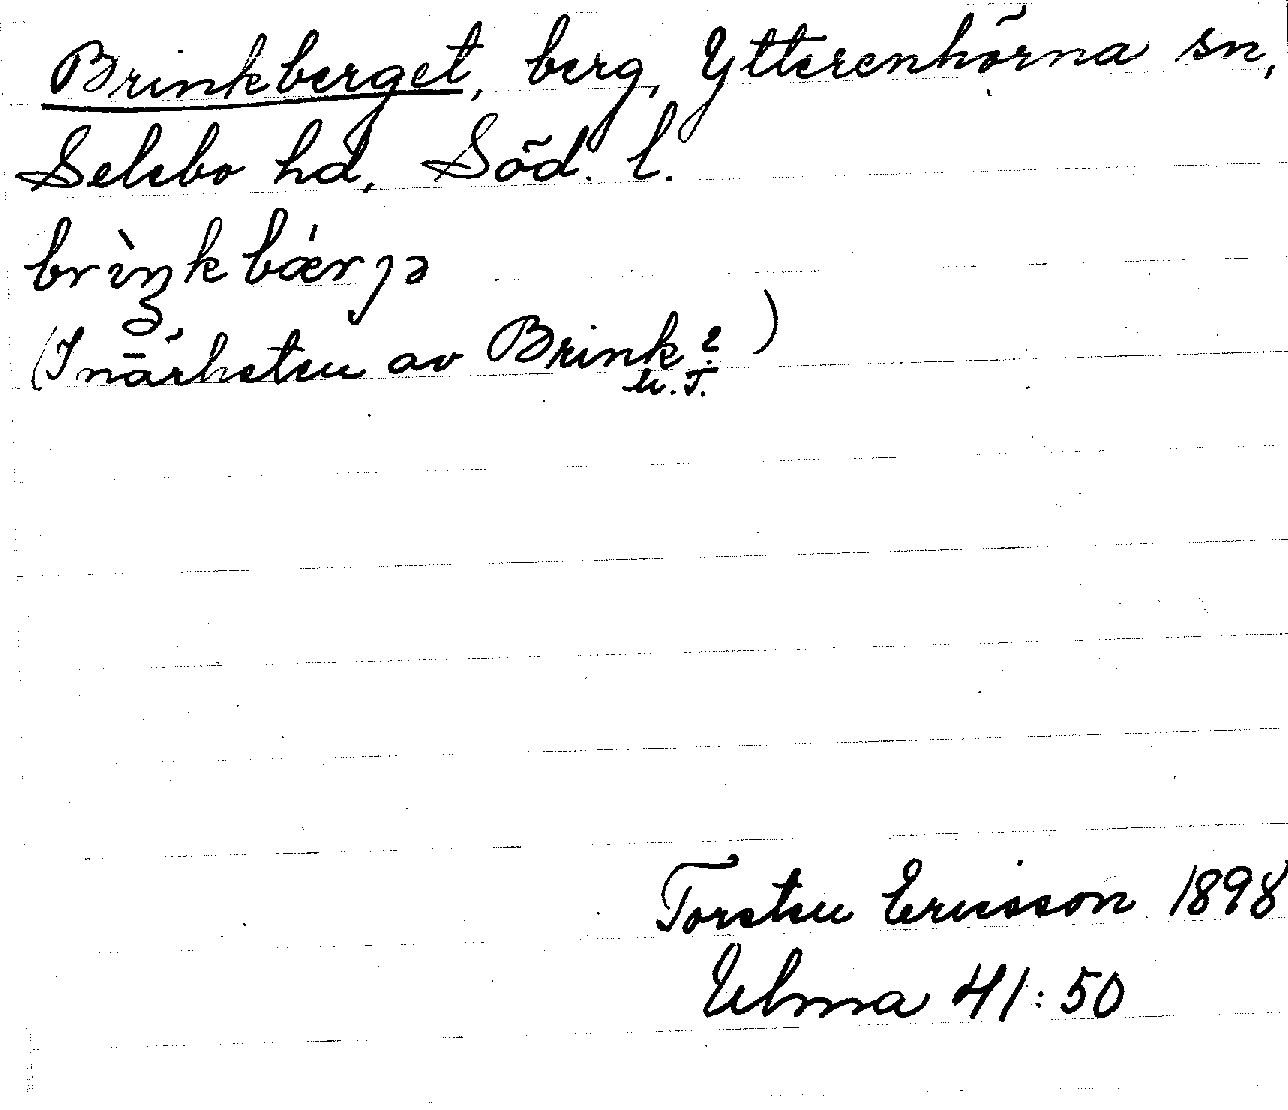 Brinkberget, berg, Ytterenhörna sn,
Selebo hd, Söd. l.
brìŋkbæ̀rjə
(I närheten av Brink? )
u. T.
Torsten Ericsson 1898
Ulma 41:50